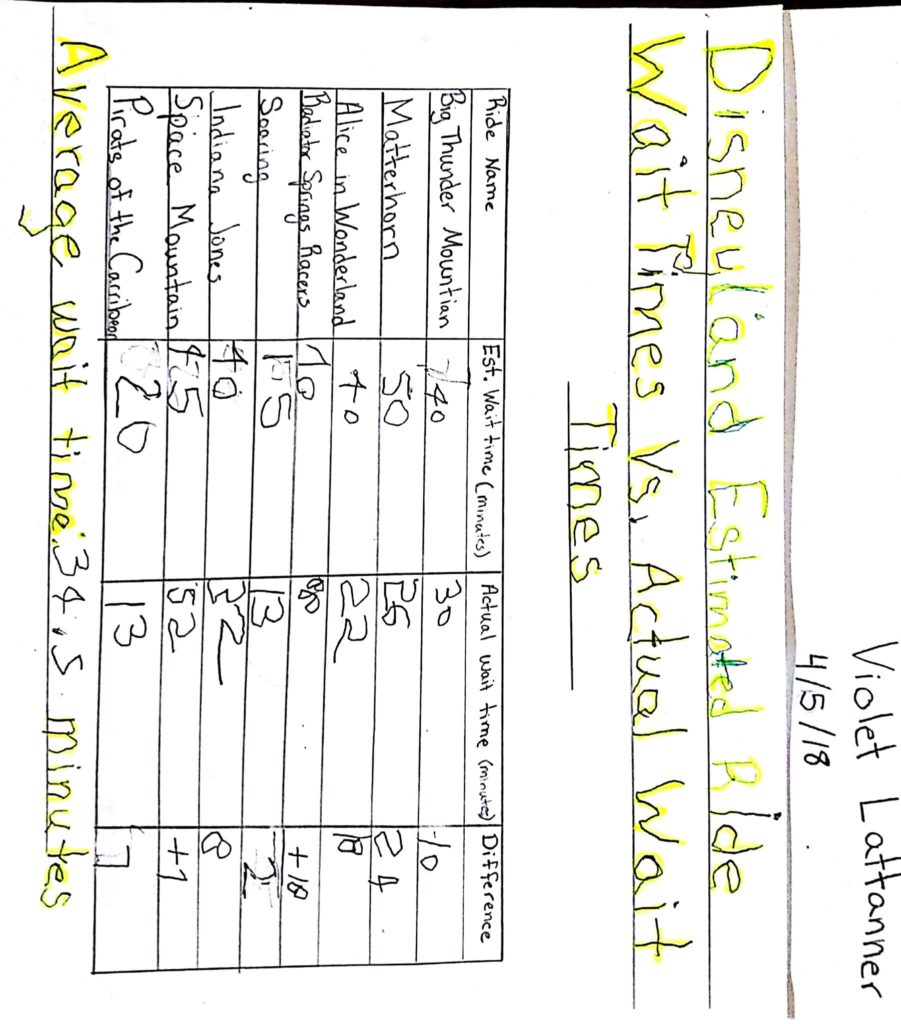 Violet Lattanner
4/5/18
Disneyland Estimated Ride
Wait Times Vs. Actual Wait
Times
Ride Name Est. Wait time (minutes) Actual wait time (minutes) Difference
Big Thunder Mountian 40 30 -10
Matterhorn 50 26 24
Alice in Wonderland 40 22 18
Radiator Springs Racers 70 88 +18
Soaring 15 13 2
Indiana Jones 40 32 8
Space Mountain 45 52 +7
Pirats of the Carribean 20 13 7
Average wait time: 34.5 minutes